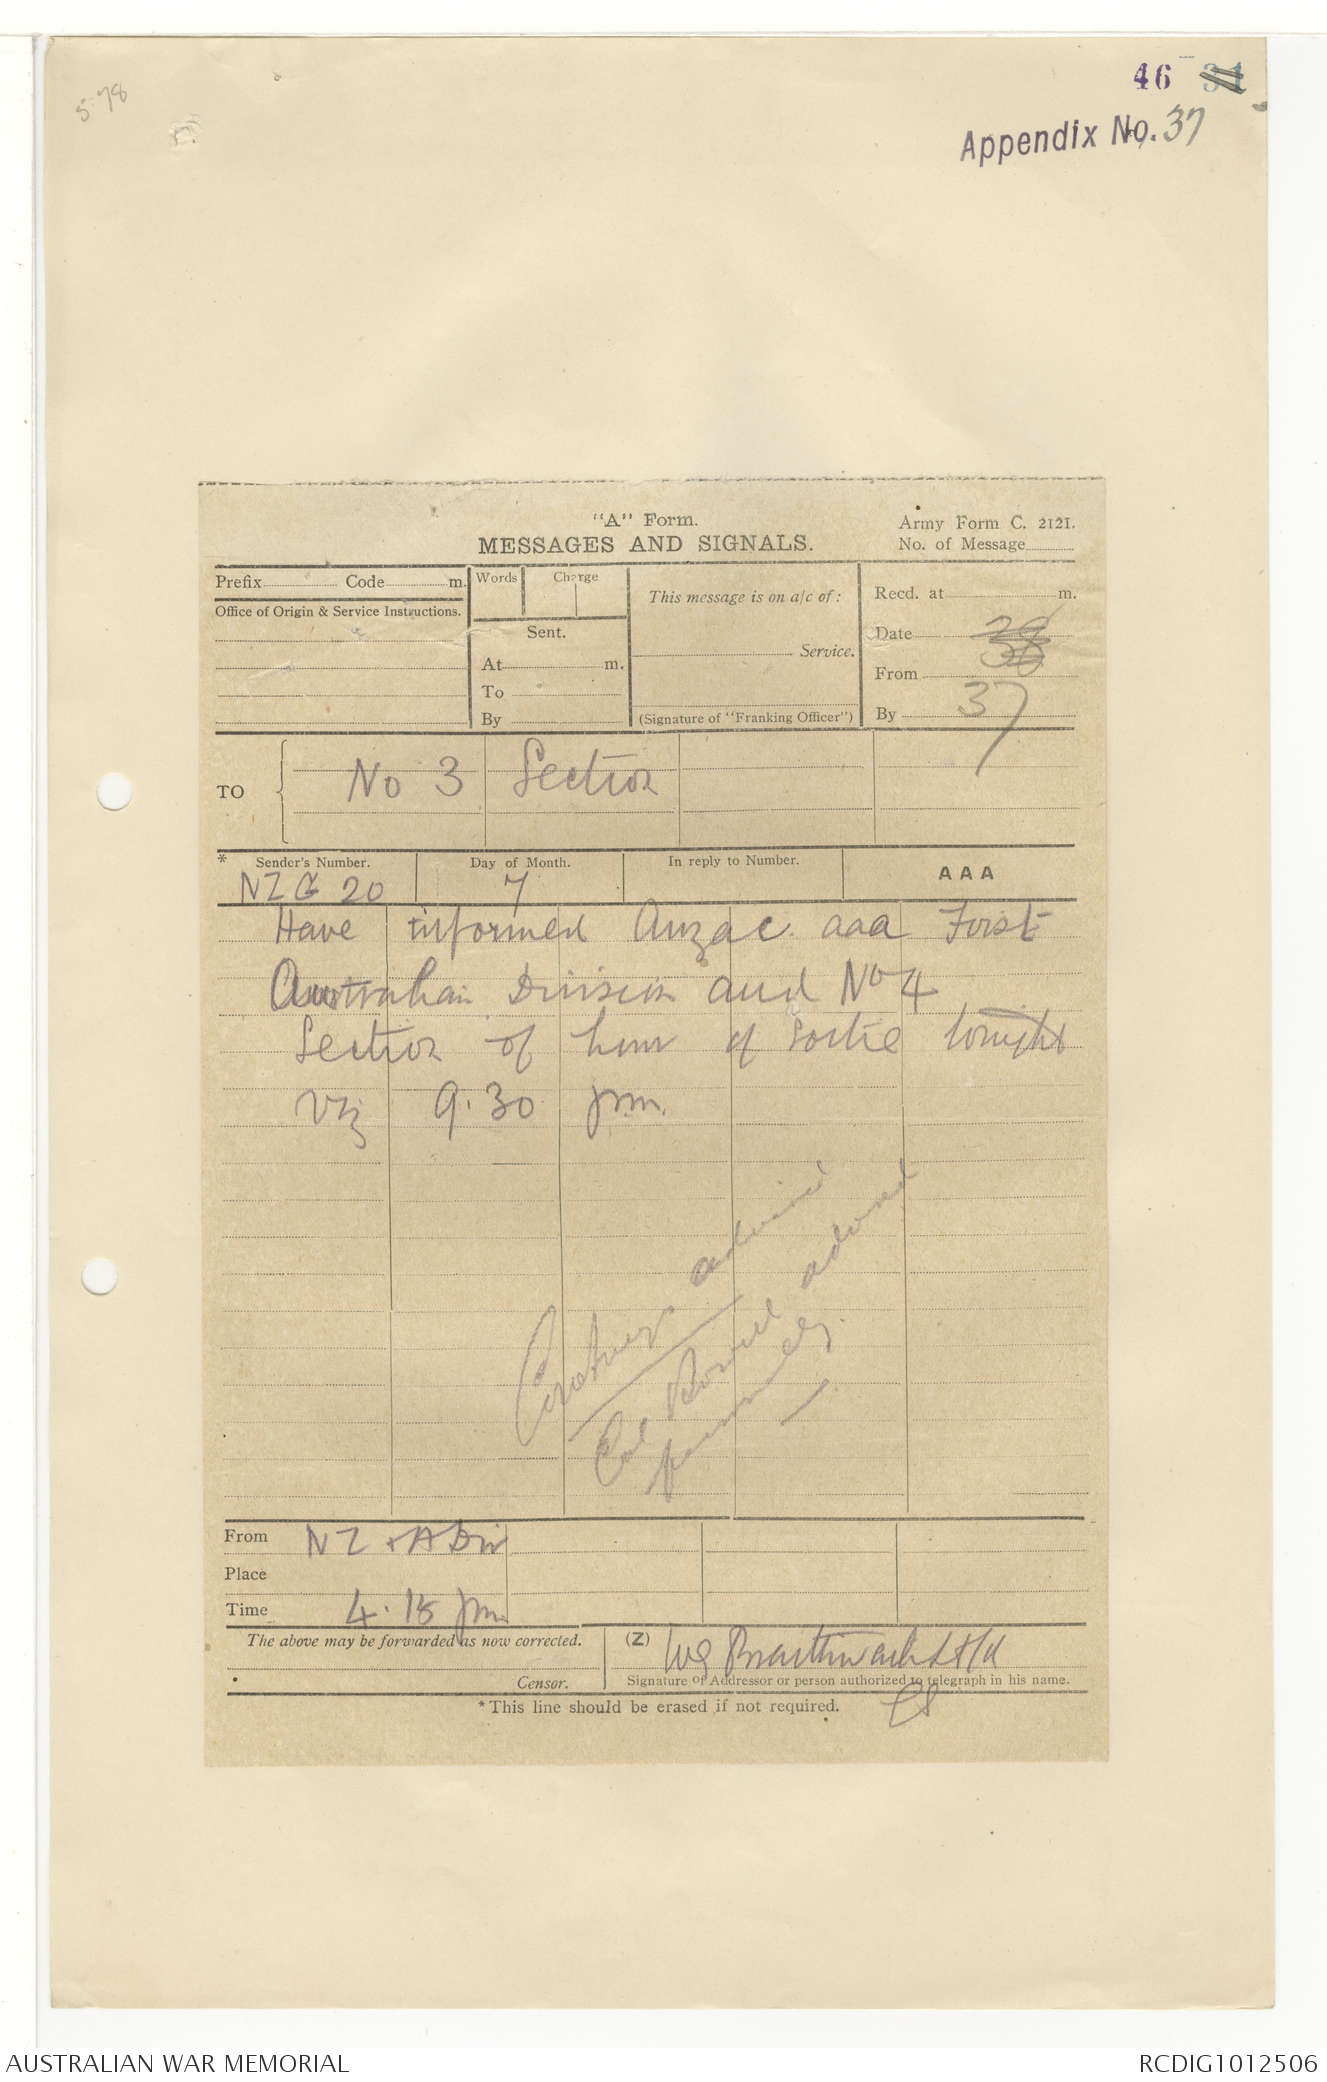 5.78
46 34
Appendix No. 37
"A" Form.
MESSAGES AND SIGNALS.
Army Form C. 2121.
No. of Message
Prefix Code m.
Words
Charge
This message is on a/c of:
Recd. at m.
Office of Origin & Service Instructions.
Sent.
Date 29
30
Service.
At m.
From
To
37
By
(Signature of "Franking Officer")
By
TO
No 3 Section
* Sender's Number.
Day of Month.
In reply to Number.
AAA
NZG 20
7
Have informed Anzac aaa First
Australian Division and No 4
Section of hour of sortie tonight
viz 9.30 pm.
advised
Col advised
From NZ + A Div
Place
Time 4.15 pm
The above may be forwarded as now corrected.
(Z)
WG Braithwaite Lt/Col
Censor.
Signature of Addressor or person authorized to telegraph in his name.
* This line should be erased if not required.
GS
AUSTRALIAN WAR MEMORIAL
RCDIG1012506